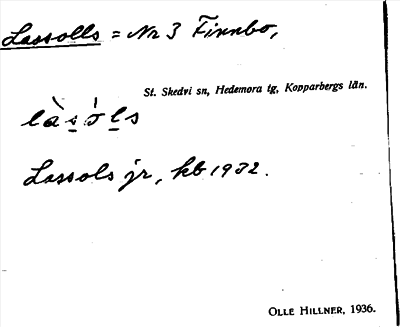 Lassolls = Nr 3 Finnbo,
St. Skedvi sn, Hedemora tg, Kopparbergs län.
là s̲ ɔ́ l̲ s
Lassols jr, kb 1932.
OLLE HILLNER, 1936.